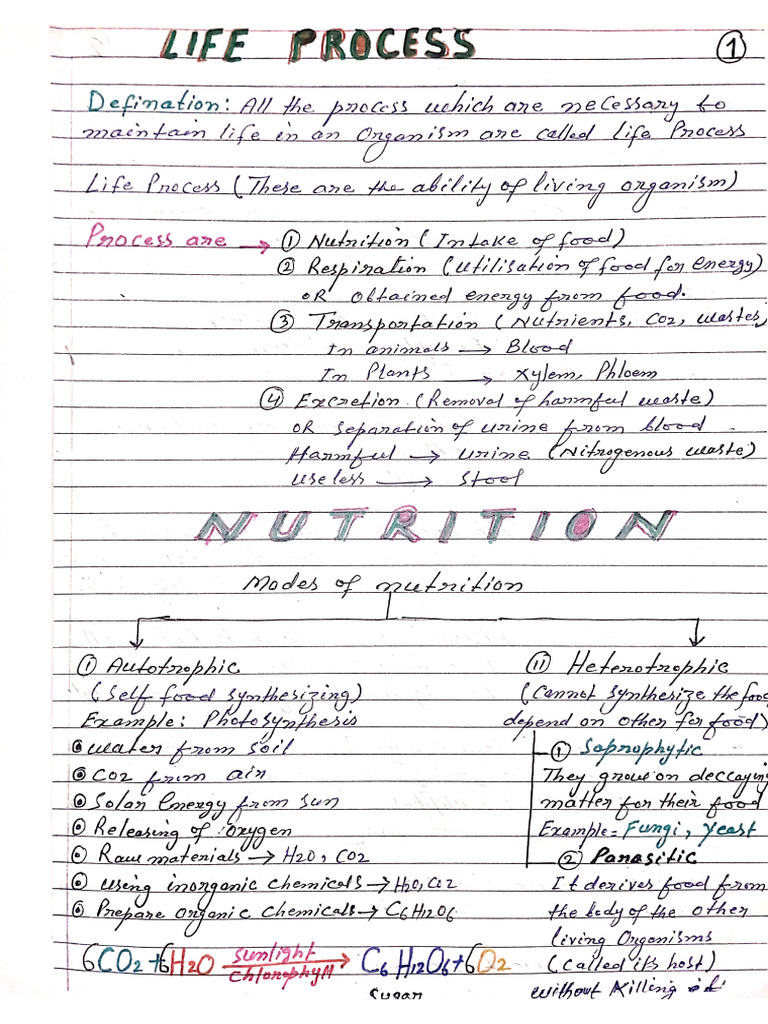 LIFE PROCESS
1
Defination: All the process which are necessary to
maintain life in an Organism are called Life Process
Life Process (These are the ability of living organism)
Process are → ① Nutrition (Intake of food)
② Respiration (Utilisation of food for energy)
OR Obtained energy from food.
③ Transportation (Nutrients, CO2, wastes,
In animals → Blood
In Plants → Xylem, Phloem
④ Excretion (Removal of harmful waste)
OR Separation of urine from blood.
Harmful → Urine (Nitrogenous waste)
Useless → Stool
NUTRITION
Modes of nutrition
① Autotrophic
(Self food synthesizing)
Example: Photosynthesis
water from soil
CO2 from air
Solar Energy from sun
Releasing of oxygen
Raw materials → H2O, CO2
using inorganic chemicals → H2O, CO2
Prepare Organic Chemicals → C6H12O6
6CO2 + 6H2O sunlight chlorophyll → C6H12O6 + 6O2
Sugar
II Heterotrophic
(Cannot synthesize the food
depend on other for food)
① Saprophytic
They grow on deccaying
matter for their food
Example = Fungi, Yeast
② Parasitic
It derives food from
the body of the other
living Organisms
(called its host)
without killing it